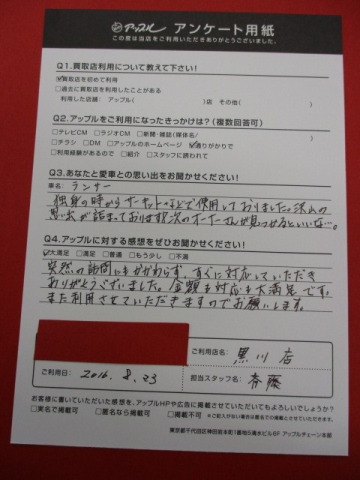 アップル アンケート用紙
この度は当店をご利用いただきありがとうございました。
Q1.買取店利用について教えて下さい!
☑買取店を初めて利用
□過去に買取店を利用したことがある
利用した店舗: アップル( )店 その他( )
Q2.アップルをご利用になったきっかけは?(複数回答可)
□テレビCM □ラジオCM □新聞・雑誌(媒体名/ )
□チラシ □DM □アップルのホームページ ☑通りがかりで
□利用経験があるので □紹介 □スタッフに誘われて
Q3.あなたと愛車との思い出をお聞かせください!
車名: ランサー
独身の時からサーキットなどで使用しておりました。沢山の
思い出が詰まっており
次のオーナーさんが見つかるといいな…。
Q4.アップルに対する感想をぜひお聞かせください!
☑大満足 □満足 □普通 □もう少し □不満
突然の訪問にもかかわらず、すぐに対応していただき
ありがとうございました。金額も対応も大満足です。
また利用させていただきますのでお願いします。
ご利用店名: 黒川店
ご利用日: 2016. 8. 23
担当スタッフ名: 斉藤
お客様に書いていただいた感想を、アップルHPや広告に掲載させていただいてもよろしいでしょうか?
□実名で掲載可 □匿名なら掲載可 □掲載不可 ※ご記入がない場合は匿名での掲載とさせていただきます。
東京都千代田区神田岩本町1番地5清水ビル6F アップルチェーン本部